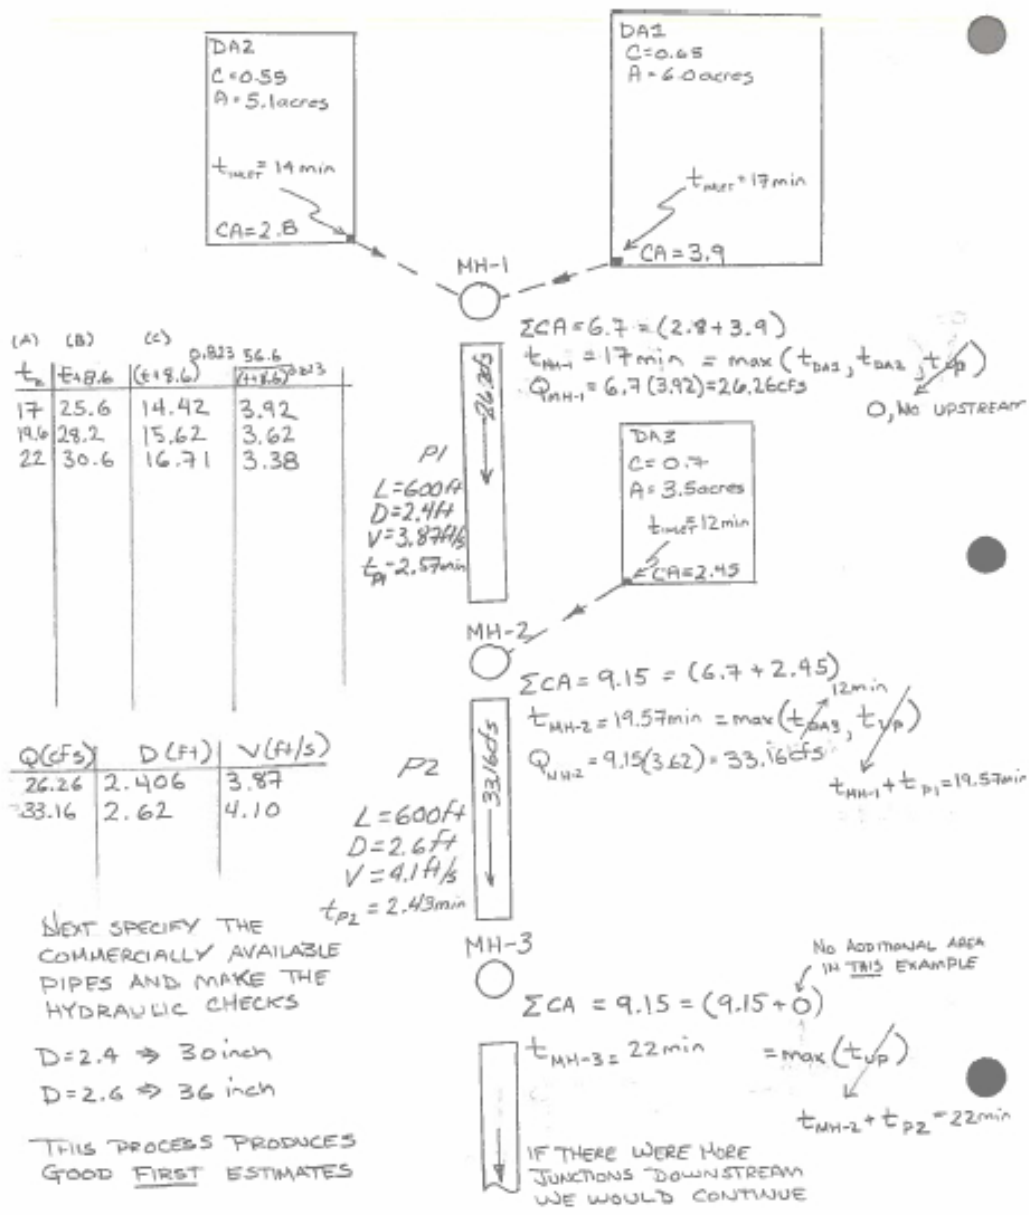 DA2
C=0.55
A=5.1acres
t_INLET = 14 min
CA=2.8
DA1
C=0.65
A=6.0acres
t_INLET = 17min
CA=3.9
MH-1
ΣCA=6.7 = (2.8+3.9)
t_MH-1 = 17min = max(t_DA1, t_DA2, t_up)
Q_MH-1 = 6.7(3.92)=26.26cfs
0, NO UPSTREAM
(A) (B) (C)
t+8.6 (t+8.6)^0.823 56.6/(t+8.6)^0.823
17 25.6 14.42 3.92
19.6 28.2 15.62 3.62
22 30.6 16.71 3.38
P1
L=600ft
D=2.4ft
V=3.87ft/s
t_P1=2.57min
26.26cfs
DA3
C= 0.7
A= 3.5acres
t_INLET=12min
CA=2.45
MH-2
ΣCA = 9.15 = (6.7 + 2.45)
12min
t_MH-2 = 19.57min = max(t_DA3, t_up)
Q_MH-2 = 9.15(3.62) = 33.16cfs
t_MH-1 + t_P1 = 19.57min
Q(cfs) D(ft) V(ft/s)
26.26 2.406 3.87
33.16 2.62 4.10
P2
L=600ft
D=2.6ft
V=4.1ft/s
t_P2 = 2.43min
33.16cfs
MH-3
NO ADDITIONAL AREA
IN THIS EXAMPLE
ΣCA = 9.15 = (9.15+0)
t_MH-3 = 22min = max(t_up)
t_MH-2 + t_P2 = 22min
IF THERE WERE MORE
JUNCTIONS DOWNSTREAM
WE WOULD CONTINUE
NEXT SPECIFY THE
COMMERCIALLY AVAILABLE
PIPES AND MAKE THE
HYDRAULIC CHECKS
D=2.4 ⇒ 30inch
D=2.6 ⇒ 36 inch
THIS PROCESS PRODUCES
GOOD FIRST ESTIMATES